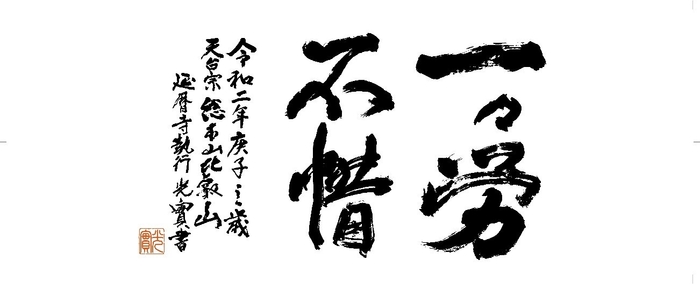 一々労
不惜
令和二年庚子之歳
天台宗総本山比叡山
延暦寺執行光實書
光實